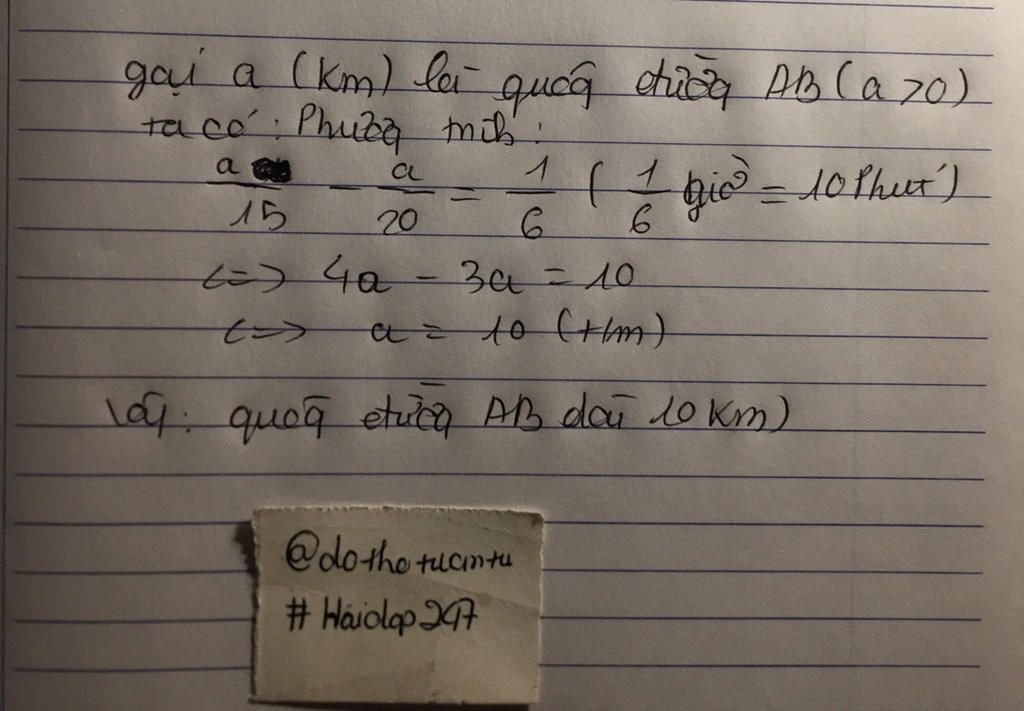 gọi a (km) là quãng đường AB (a>0)
ta có: Phương trình:
a/15 - a/20 = 1/6 ( 1/6 giờ = 10 Phút)
<=> 4a - 3a = 10
<=> a = 10 (t/m)
Vậy: quãng đường AB dài 10 km)
@dothotuantu
# Hoidap247